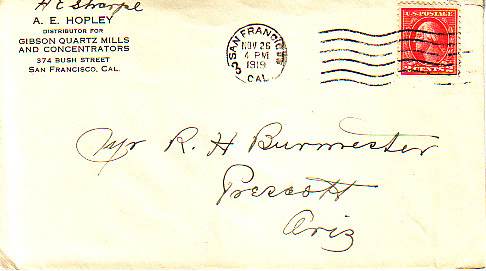 H E Sharpe
A. E. HOPLEY
DISTRIBUTOR FOR
GIBSON QUARTZ MILLS
AND CONCENTRATORS
374 BUSH STREET
SAN FRANCISCO, CAL.
SAN FRANCISCO
NOV 26
4 PM
1919
CAL.
U.S. POSTAGE
2 CENTS 2
Mr R. H Burmester
Prescott
Ariz